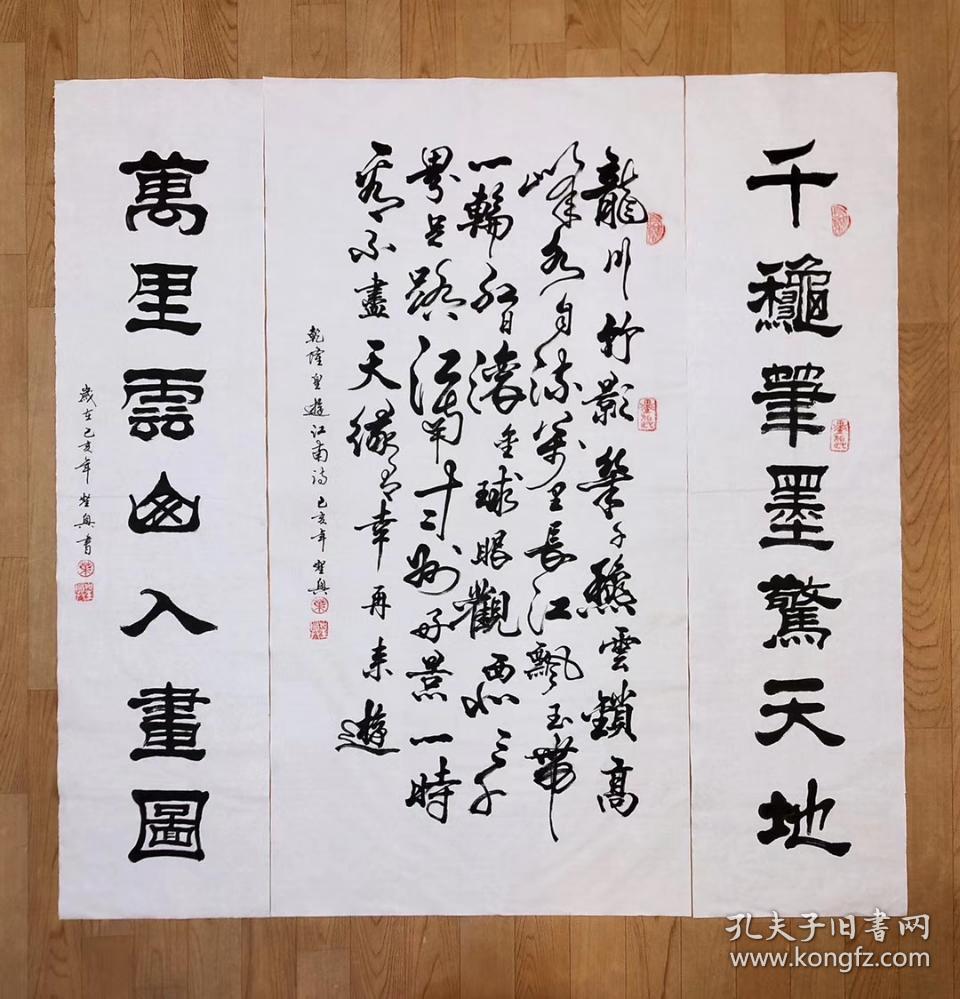 千龝筆墨驚天地
龍川竹影幾千龝雲鎖高
峰水自流萬里長江飄玉帶
一輪紅日滾金球眼觀西北三千
界足踏江南十二州好景一時
看不盡天緣有幸再來遊
乾隆皇遊江南詩 己亥年
萬里雲山入畫圖
歲在己亥年 書
孔夫子旧书网
www.kongfz.com